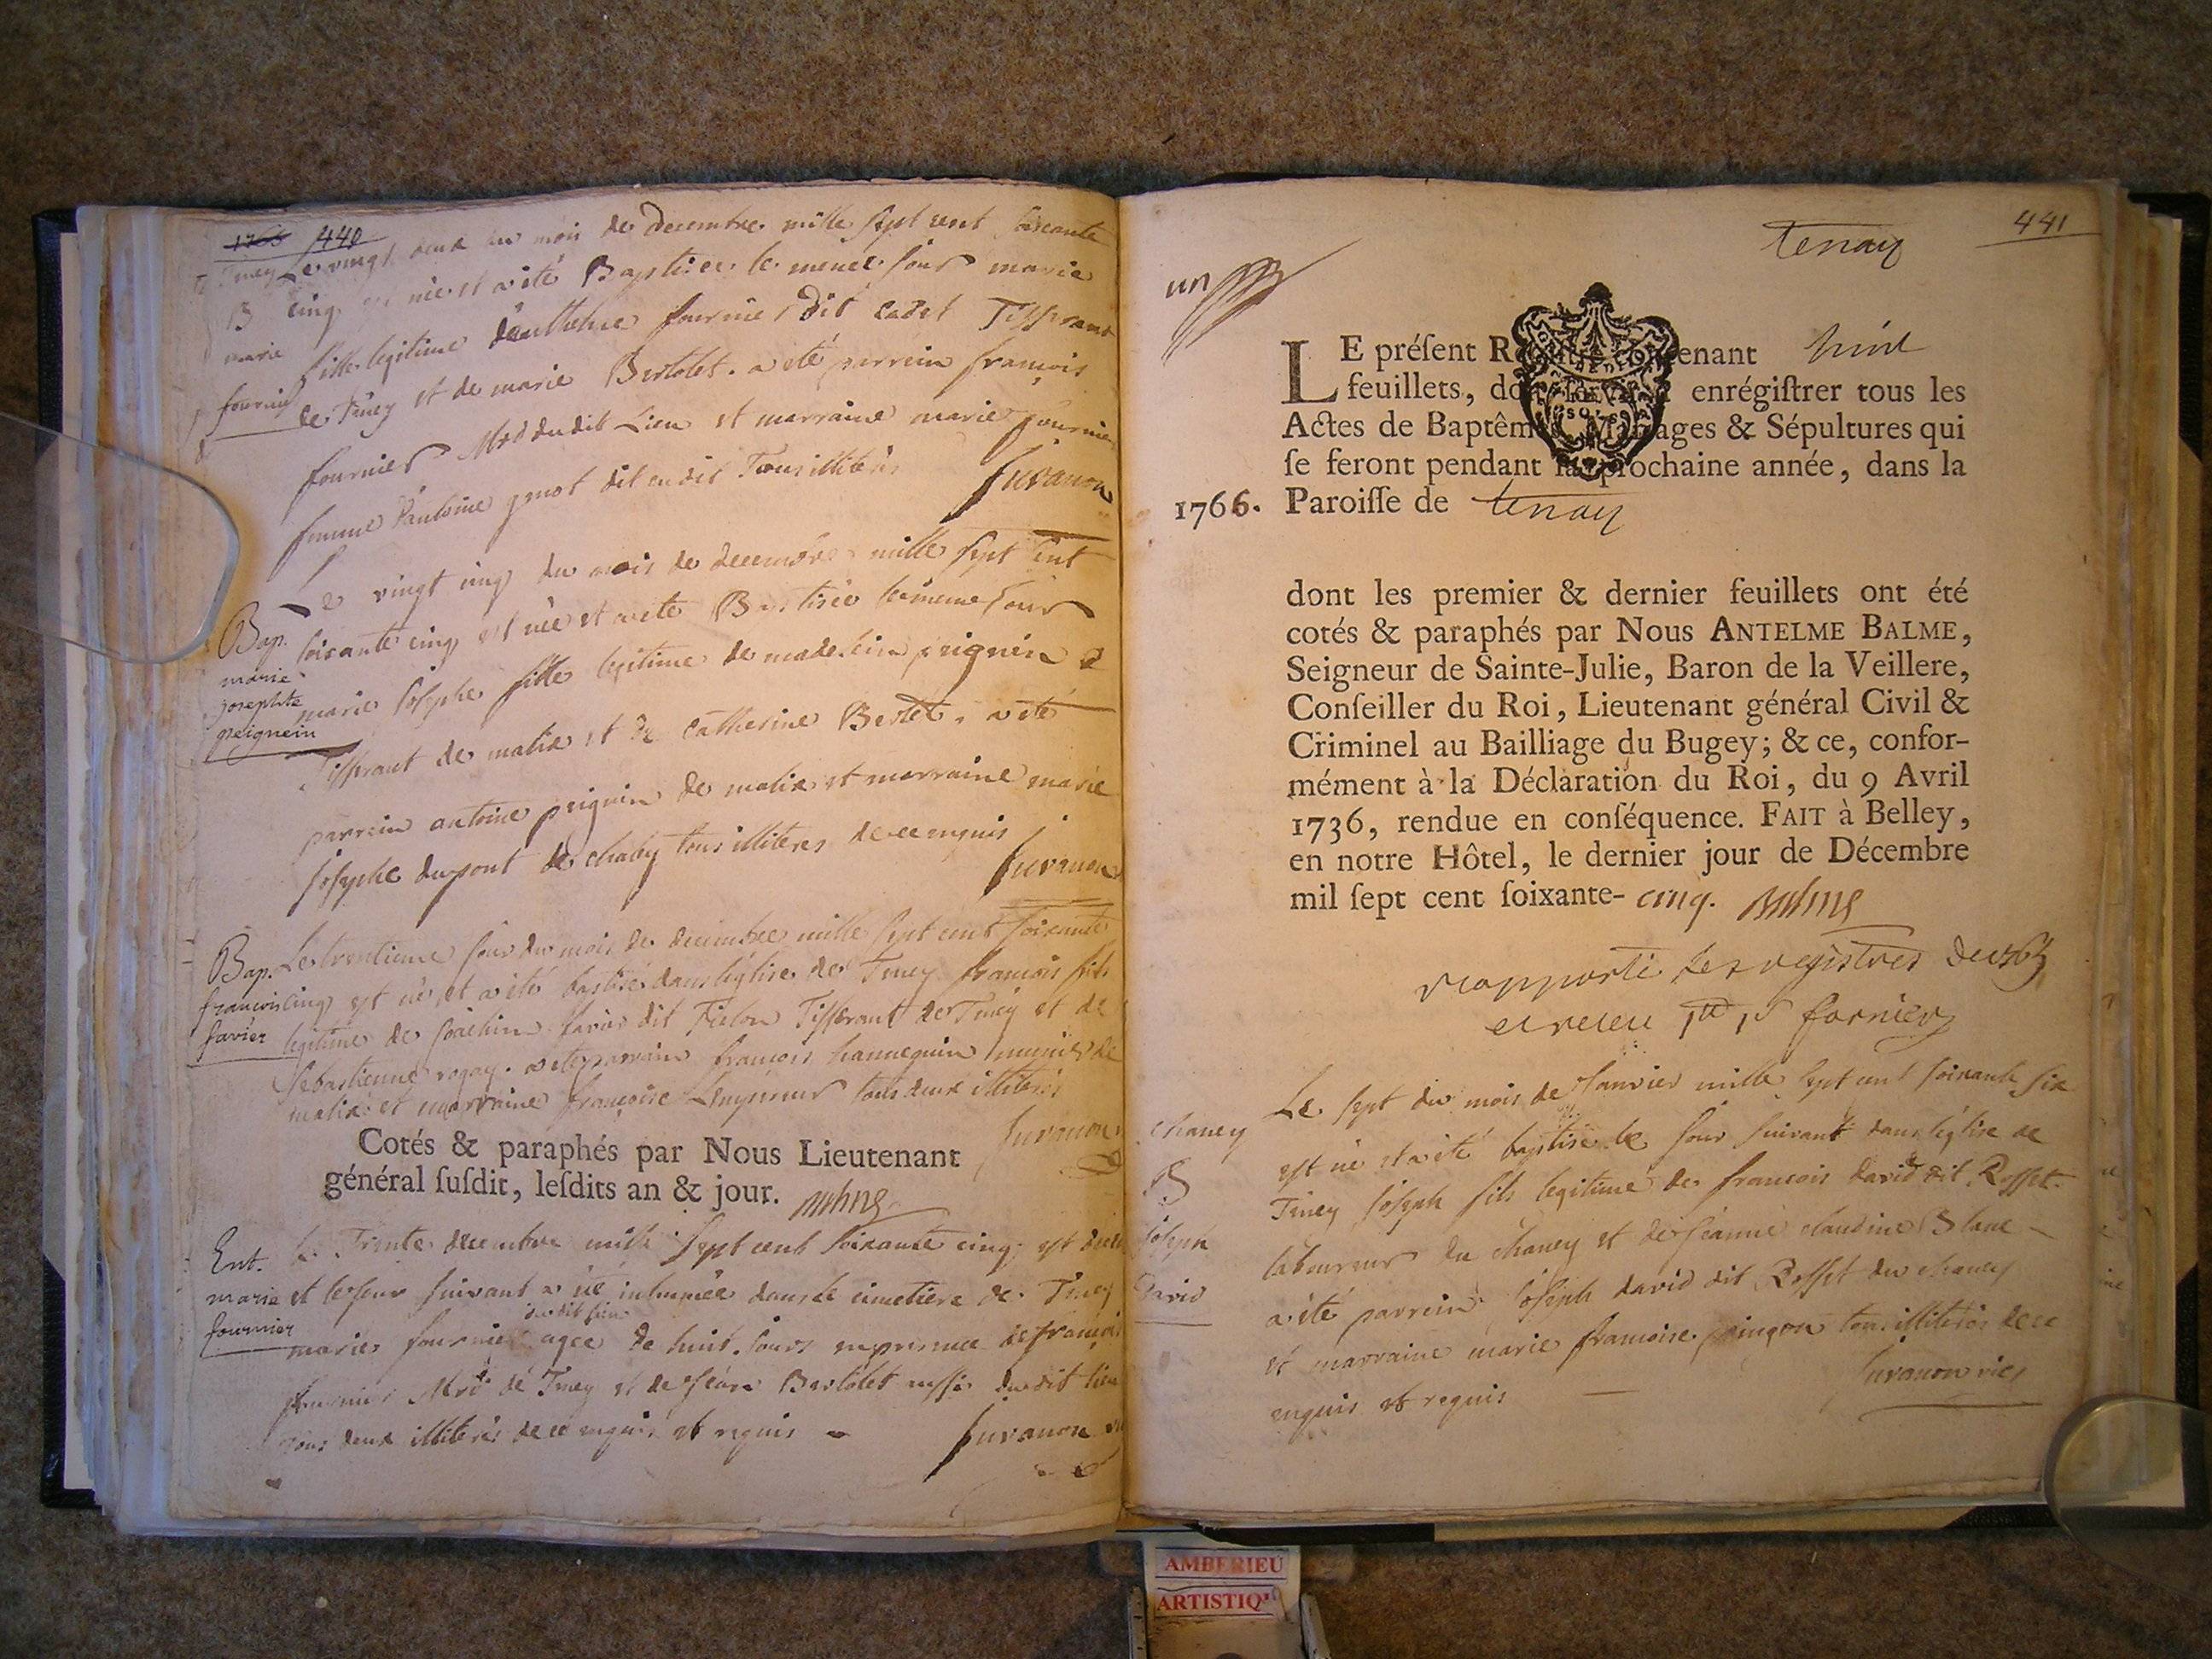 1765 440
Le vingt deux du mois de decembre mille sept cent soixante
B cinq est née et a été Baptisée le meme jour marie
marie fille legitime fournier dit cadet Tisserant
fournier de Tiney et de marie Bertolet. a été parrein francois
fournier Mrd dudit Lieu et marraine marie fournier
femme d'antoine dit Tous illiterés Juvanon
Le vingt cinq du mois de decembre mille sept cent
Bap. soixante cinq est née et a été Baptisée le meme jour
marie josephte peignein
marie josephe fille legitime de peignin
Tisserant de malix et de Catherine Bertet. a été
parrein antoine peignin de malix et marraine marie
josephe dupont de chaby tous illiteres de ce enquis Juvanon
Bap. Le trentieme jour du mois de decembre mille sept cent soixante
francois cinq est né et a été baptisé dans l'église de Tiney francois fils
favier legitime de joachim favier dit Tisserant de Tiney et de
Sebastienne rogay. a été parrain françois hannequin munier de
malix et marraine françoise tous deux illiterés
Juvanon
Cotés & paraphés par Nous Lieutenant
général susdit, lesdits an & jour. Balme
Ent. Le Trente decembre mille sept cent soixante cinq est
marie et le jour suivant a été inhumée dans le cimetiere de Tiney
fournier
dudit lieu
marie fournier agée de huit jours en presence de françois
fournier Mrd de Tiney et de Bertolet aussi dudit lieu
tous deux illiterés de ce enquis et requis Juvanon
441
tenay
un
LE présent Registre contenant huit
feuillets, doit servir à enrégistrer tous les
Actes de Baptêmes, Mariages & Sépultures qui
se feront pendant la prochaine année, dans la
1766. Paroisse de tenay
dont les premier & dernier feuillets ont été
cotés & paraphés par Nous ANTELME BALME,
Seigneur de Sainte-Julie, Baron de la Veillere,
Conseiller du Roi, Lieutenant général Civil &
Criminel au Bailliage du Bugey; & ce, confor-
mément à la Déclaration du Roi, du 9 Avril
1736, rendue en conséquence. FAIT à Belley,
en notre Hôtel, le dernier jour de Décembre
mil sept cent soixante- cinq. Balme
rapporté les registres de
et receu fornier
Le sept du mois de Janvier mille sept cent soixante six
chaney est né et a été baptisé le jour suivant dans l'église de
B Tiney joseph fils legitime de francois david dit Rosset
joseph laboureur du chaney et de jeanne claudine Blanc
david a été parrein joseph david dit Rosset du chaney
et marraine marie francoise pingon tous illiterés de ce
enquis et requis Juvanon vic
AMBERIEU
ARTISTIQU